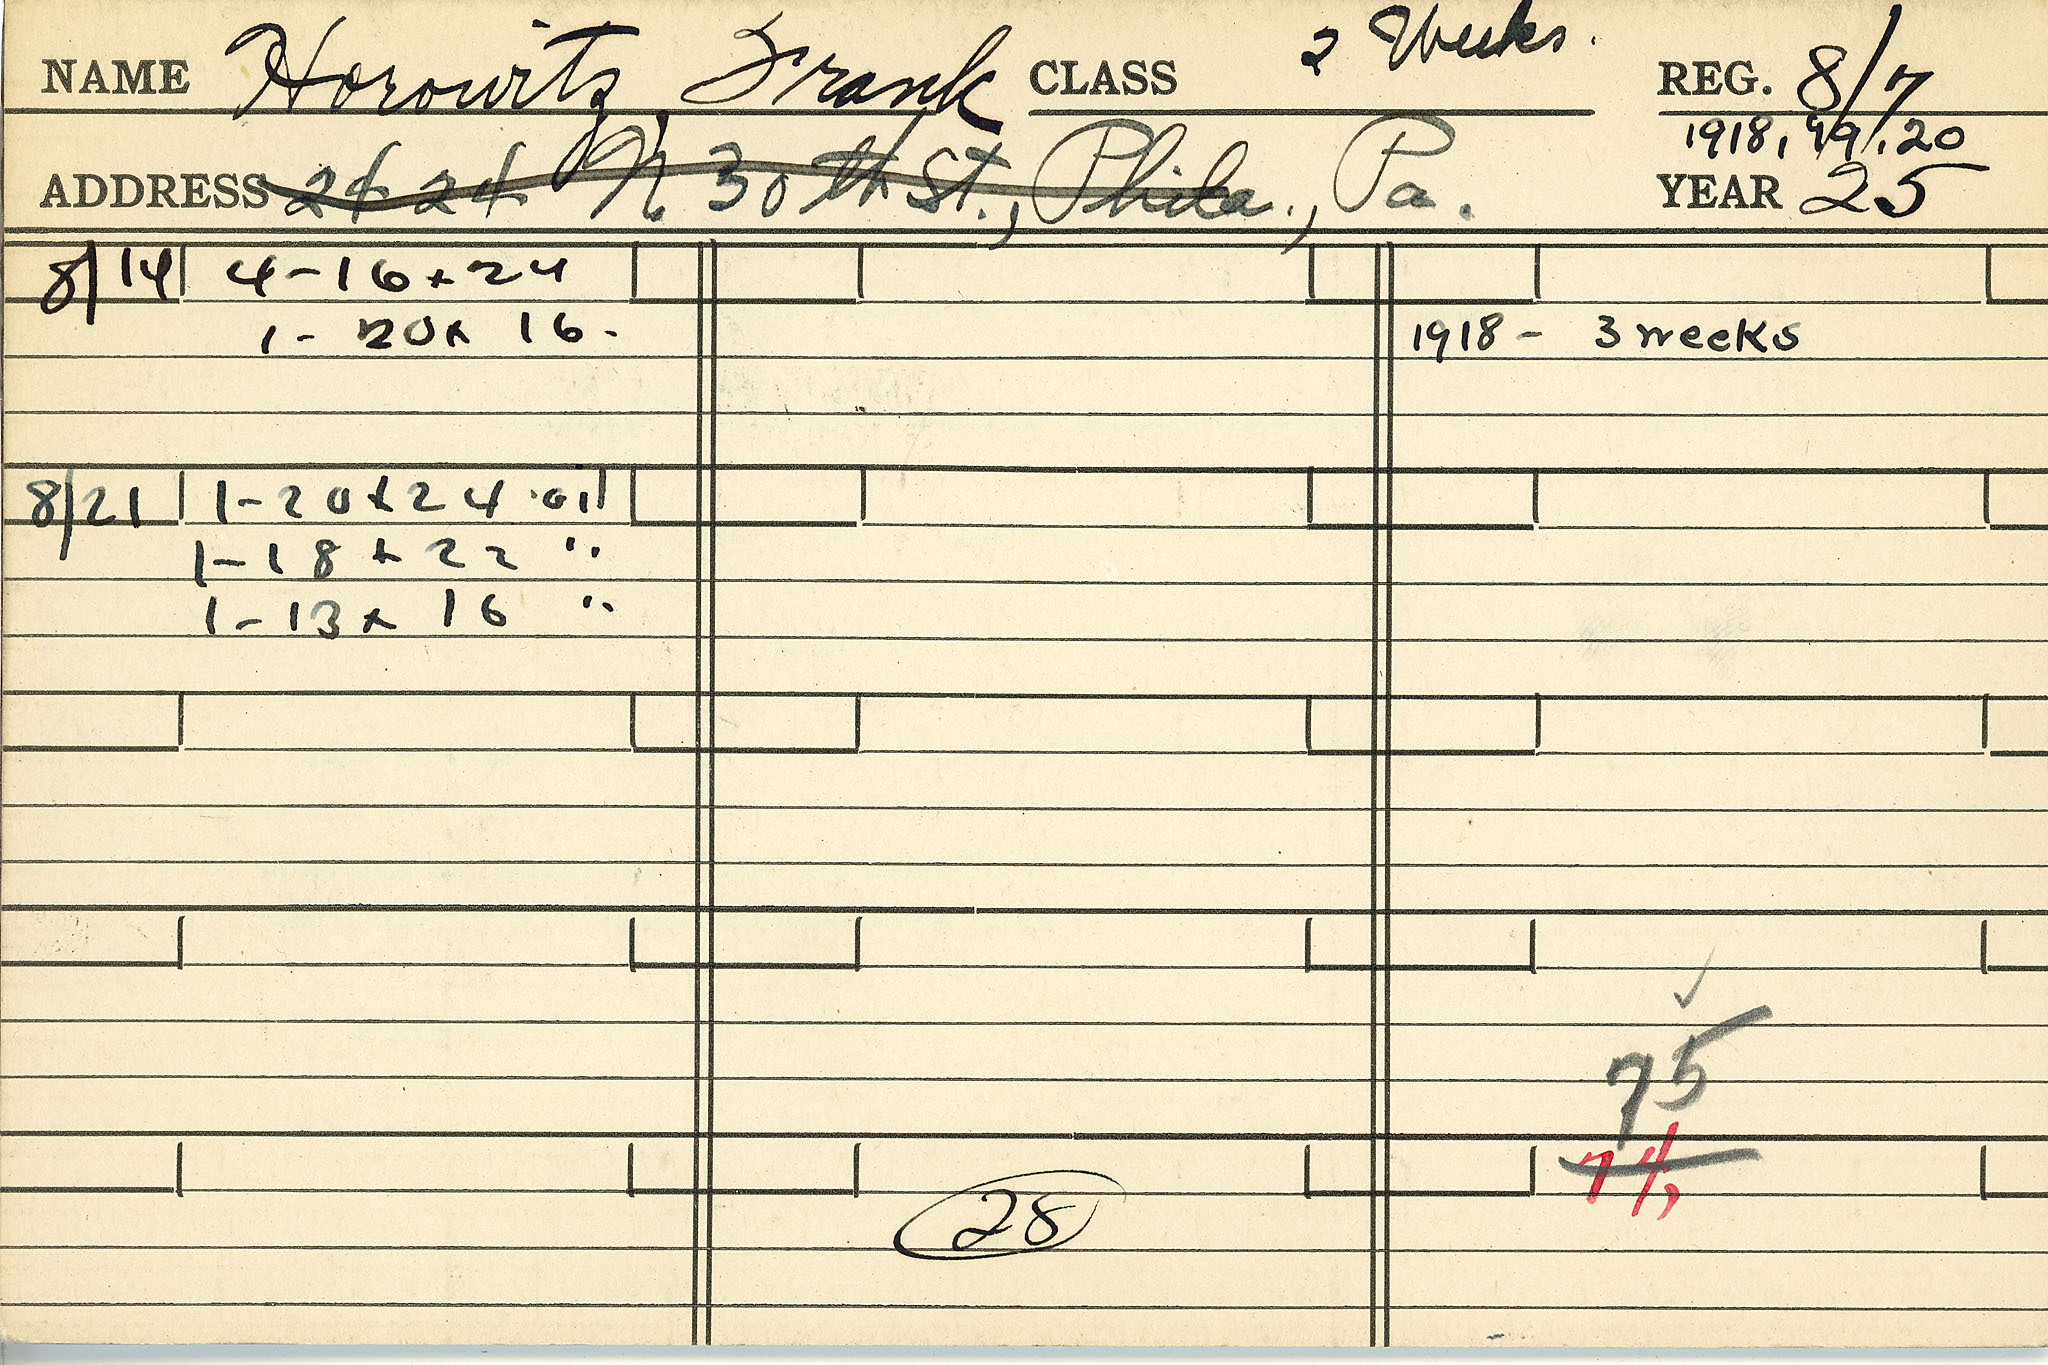 NAME Horowitz, Frank CLASS 2 Weeks. REG. 8/7
1918, 19, 20
ADDRESS 2424 N. 30th St., Phila., Pa. YEAR 25
8/14 4-16x24
1- 20x 16-
1918 - 3 weeks
8/21 1-20x24 oil
1-18 x 22 "
1-13x 16 "
75
28